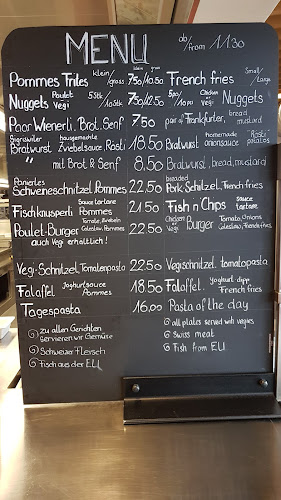 MENU ab/from 11 30
klein/gross klein gross Small/Large
Pommes Frites 7.50/10.50 French fries
Nuggets Poulet Vegi 5Stk/10Stk 7.50/12.50 5pc/10pc Chicken Vegi Nuggets
Paar Wienerli, Brot, Senf 7.50 pair of Frankfurter, bread mustard
Bratwurst hausgemachte Zwiebelsauce, Rösti 18.50 Bratwurst homemade onionsauce "Rösti" potatos
" mit Brot & Senf 8.50 Bratwurst, bread, mustard
Paniertes Schweineschnitzel, Pommes 22.50 breaded Pork Schnitzel, French fries
Fischknusperli Sauce tartare Pommes 21.50 Fish n' Chips sauce tartare
Poulet-Burger Tomate, Zwiebeln Coleslaw, Pommes 22.50 Chicken or Vegi Burger Tomato, Onions Coleslaw, French fries
auch Vegi erhältlich!
Vegi-Schnitzel, Tomatenpasta 22.50 Vegischnitzel, tomatopasta
Falaffel Joghurtsauce Pommes 18.50 Falaffel, Yoghurt dipp French fries
Tagespasta 16.00 Pasta of the day
zu allen Gerichten servieren wir Gemüse all plates served with vegies
Schweizer Fleisch Swiss meat
Fisch aus der EU Fish from EU